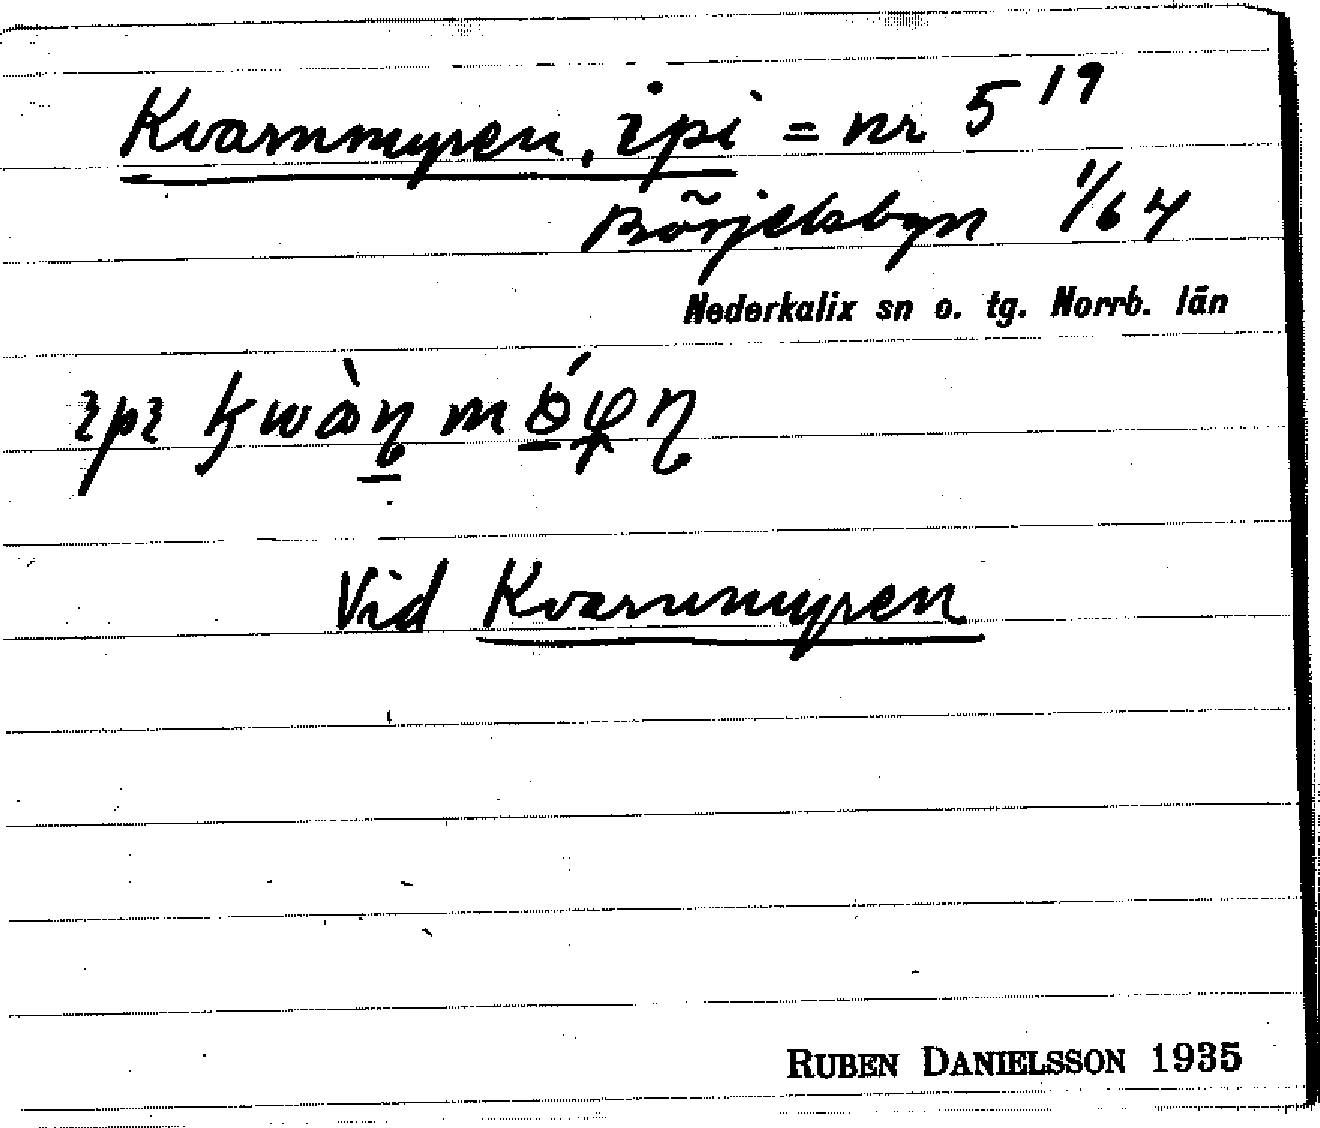 Kvarnmyren, ɩpi = nr 5 19
Börjelsbyn 1/64
Nederkalix sn o. tg. Norrb. län
Vid Kvarnmyren
RUBEN DANIELSSON 1935